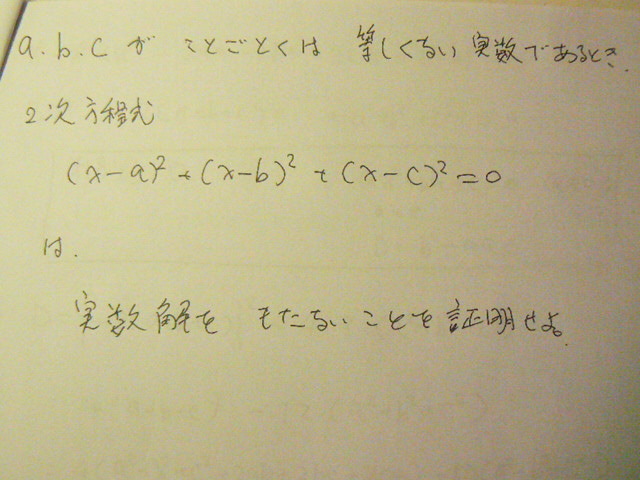 a.b.c が ことごとくは 等しくない 実数であるとき.
2次方程式
(x-a)² + (x-b)² + (x-c)² = 0
は.
実数解を もたないことを証明せよ。